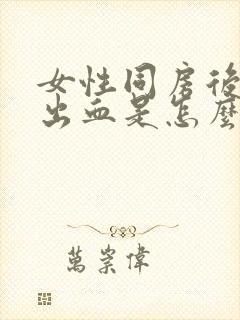 女性同房後
出血是怎麼
萬崇偉